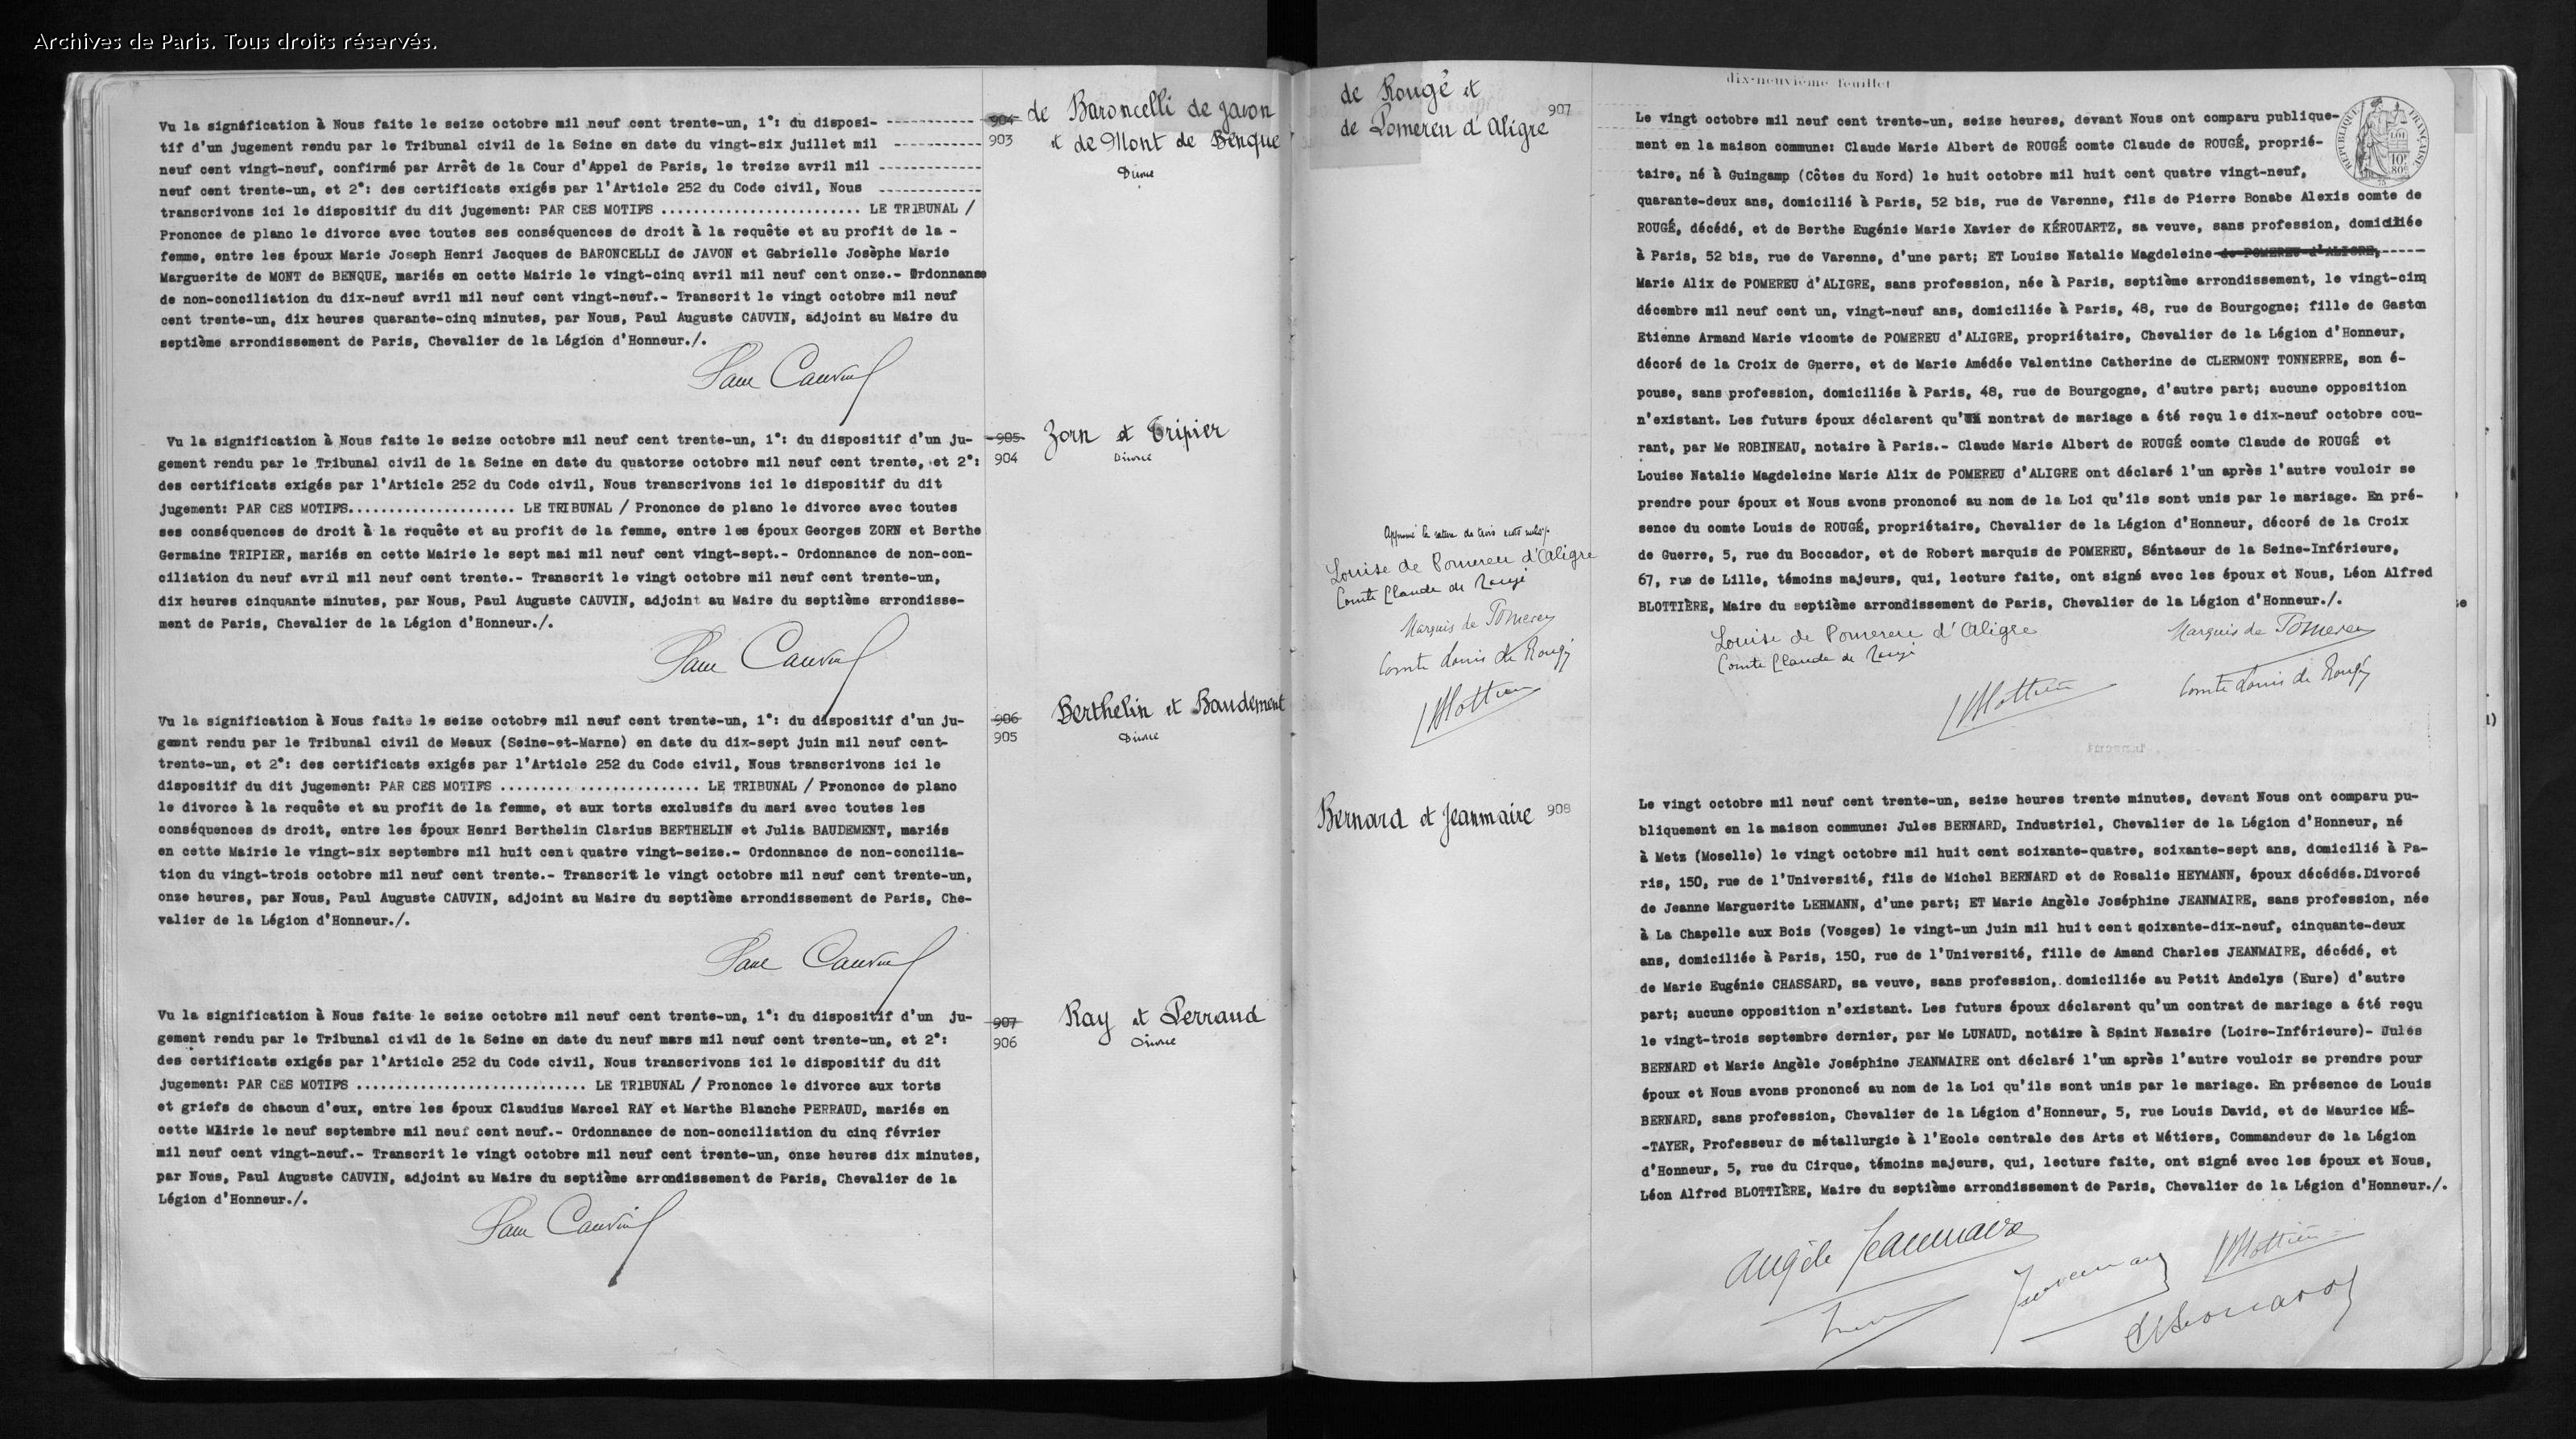 Archives de Paris. Tous droits réservés.
904 de Baroncelli de Javon
903 et de Mont de Benque
Divorce
Vu la signification à Nous faite le seize octobre mil neuf cent trente-un, 1°: du disposi- -----------
tif d'un jugement rendu par le Tribunal civil de la Seine en date du vingt-six juillet mil -----------
neuf cent vingt-neuf, confirmé par Arrêt de la Cour d'Appel de Paris, le treize avril mil -------------
neuf cent trente-un, et 2°: des certificats exigés par l'Article 252 du Code civil, Nous -------------
transcrivons ici le dispositif du dit jugement: PAR CES MOTIFS ......................... LE TRIBUNAL /
Prononce de plano le divorce avec toutes ses conséquences de droit à la requête et au profit de la -
femme, entre les époux Marie Joseph Henri Jacques de BARONCELLI de JAVON et Gabrielle Josèphe Marie
Marguerite de MONT de BENQUE, mariés en cette Mairie le vingt-cinq avril mil neuf cent onze.- Ordonnance
de non-conciliation du dix-neuf avril mil neuf cent vingt-neuf.- Transcrit le vingt octobre mil neuf
cent trente-un, dix heures quarante-cinq minutes, par Nous, Paul Auguste CAUVIN, adjoint au Maire du
septième arrondissement de Paris, Chevalier de la Légion d'Honneur./.
Paul Cauvin
905 Zorn et Tripier
904 Divorce
Vu la signification à Nous faite le seize octobre mil neuf cent trente-un, 1°: du dispositif d'un ju-
gement rendu par le Tribunal civil de la Seine en date du quatorze octobre mil neuf cent trente, et 2°:
des certificats exigés par l'Article 252 du Code civil, Nous transcrivons ici le dispositif du dit
jugement: PAR CES MOTIFS..................... LE TRIBUNAL / Prononce de plano le divorce avec toutes
ses conséquences de droit à la requête et au profit de la femme, entre les époux Georges ZORN et Berthe
Germaine TRIPIER, mariés en cette Mairie le sept mai mil neuf cent vingt-sept.- Ordonnance de non-con-
ciliation du neuf avril mil neuf cent trente.- Transcrit le vingt octobre mil neuf cent trente-un,
dix heures cinquante minutes, par Nous, Paul Auguste CAUVIN, adjoint au Maire du septième arrondisse-
ment de Paris, Chevalier de la Légion d'Honneur./.
Paul Cauvin
906 Berthelin et Baudement
905 Divorce
Vu la signification à Nous faite le seize octobre mil neuf cent trente-un, 1°: du dispositif d'un ju-
gemnt rendu par le Tribunal civil de Meaux (Seine-et-Marne) en date du dix-sept juin mil neuf cent-
trente-un, et 2°: des certificats exigés par l'Article 252 du Code civil, Nous transcrivons ici le
dispositif du dit jugement: PAR CES MOTIFS ......................... LE TRIBUNAL / Prononce de plano
le divorce à la requête et au profit de la femme, et aux torts exclusifs du mari avec toutes les
conséquences de droit, entre les époux Henri Berthelin Clarius BERTHELIN et Julia BAUDEMENT, mariés
en cette Mairie le vingt-six septembre mil huit cent quatre vingt-seize.- Ordonnance de non-concilia-
tion du vingt-trois octobre mil neuf cent trente.- Transcrit le vingt octobre mil neuf cent trente-un,
onze heures, par Nous, Paul Auguste CAUVIN, adjoint au Maire du septième arrondissement de Paris, Che-
valier de la Légion d'Honneur./.
Paul Cauvin
907 Ray et Perraud
906 Divorce
Vu la signification à Nous faite le seize octobre mil neuf cent trente-un, 1°: du dispositif d'un ju-
gement rendu par le Tribunal civil de la Seine en date du neuf mars mil neuf cent trente-un, et 2°:
des certificats exigés par l'Article 252 du Code civil, Nous transcrivons ici le dispositif du dit
jugement: PAR CES MOTIFS ............................ LE TRIBUNAL / Prononce le divorce aux torts
et griefs de chacun d'eux, entre les époux Claudius Marcel RAY et Marthe Blanche PERRAUD, mariés en
cette Mairie le neuf septembre mil neuf cent neuf.- Ordonnance de non-conciliation du cinq février
mil neuf cent vingt-neuf.- Transcrit le vingt octobre mil neuf cent trente-un, onze heures dix minutes,
par Nous, Paul Auguste CAUVIN, adjoint au Maire du septième arrondissement de Paris, Chevalier de la
Légion d'Honneur./.
Paul Cauvin
dix-neuvième feuillet
RÉPUBLIQUE FRANÇAISE
de Rougé et
de Pomereu d'Aligre 907
Le vingt octobre mil neuf cent trente-un, seize heures, devant Nous ont comparu publique-
ment en la maison commune: Claude Marie Albert de ROUGÉ comte Claude de ROUGÉ, proprié-
taire, né à Guingamp (Côtes du Nord) le huit octobre mil huit cent quatre vingt-neuf,
quarante-deux ans, domicilié à Paris, 52 bis, rue de Varenne, fils de Pierre Bonabe Alexis comte de
ROUGÉ, décédé, et de Berthe Eugénie Marie Xavier de KÉROUARTZ, sa veuve, sans profession, domiciliée
à Paris, 52 bis, rue de Varenne, d'une part; ET Louise Natalie Magdeleine de POMEREU d'ALIGRE,-----
Marie Alix de POMEREU d'ALIGRE, sans profession, née à Paris, septième arrondissement, le vingt-cinq
décembre mil neuf cent un, vingt-neuf ans, domiciliée à Paris, 48, rue de Bourgogne; fille de Gaston
Etienne Armand Marie vicomte de POMEREU d'ALIGRE, propriétaire, Chevalier de la Légion d'Honneur,
décoré de la Croix de Guerre, et de Marie Amédée Valentine Catherine de CLERMONT TONNERRE, son é-
pouse, sans profession, domiciliés à Paris, 48, rue de Bourgogne, d'autre part; aucune opposition
n'existant. Les futurs époux déclarent qu'un nontrat de mariage a été reçu le dix-neuf octobre cou-
rant, par Me ROBINEAU, notaire à Paris.- Claude Marie Albert de ROUGÉ comte Claude de ROUGÉ et
Louise Natalie Magdeleine Marie Alix de POMEREU d'ALIGRE ont déclaré l'un après l'autre vouloir se
prendre pour époux et Nous avons prononcé au nom de la Loi qu'ils sont unis par le mariage. En pré-
sence du comte Louis de ROUGÉ, propriétaire, Chevalier de la Légion d'Honneur, décoré de la Croix
de Guerre, 5, rue du Boccador, et de Robert marquis de POMEREU, Séntaeur de la Seine-Inférieure,
67, rue de Lille, témoins majeurs, qui, lecture faite, ont signé avec les époux et Nous, Léon Alfred
BLOTTIÈRE, Maire du septième arrondissement de Paris, Chevalier de la Légion d'Honneur./.
Approuvé la rature de trois mots nuls./.
Louise de Pomereu d'Aligre
Comte Claude de Rougé
Marquis de Pomereu
Comte Louis de Rougé
LBlottière
Louise de Pomereu d'Aligre
Comte Claude de Rougé
Marquis de Pomereu
LBlottière
Comte Louis de Rougé
Bernard et Jeanmaire 908
Le vingt octobre mil neuf cent trente-un, seize heures trente minutes, devant Nous ont comparu pu-
bliquement en la maison commune: Jules BERNARD, Industriel, Chevalier de la Légion d'Honneur, né
à Metz (Moselle) le vingt octobre mil huit cent soixante-quatre, soixante-sept ans, domicilié à Pa-
ris, 150, rue de l'Université, fils de Michel BERNARD et de Rosalie HEYMANN, époux décédés.Divorcé
de Jeanne Marguerite LEHMANN, d'une part; ET Marie Angèle Joséphine JEANMAIRE, sans profession, née
à La Chapelle aux Bois (Vosges) le vingt-un juin mil huit cent soixante-dix-neuf, cinquante-deux
ans, domiciliée à Paris, 150, rue de l'Université, fille de Amand Charles JEANMAIRE, décédé, et
de Marie Eugénie CHASSARD, sa veuve, sans profession, domiciliée au Petit Andelys (Eure) d'autre
part; aucune opposition n'existant. Les futurs époux déclarent qu'un contrat de mariage a été reçu
le vingt-trois septembre dernier, par Me LUNAUD, notaire à Saint Nazaire (Loire-Inférieure)- Jules
BERNARD et Marie Angèle Joséphine JEANMAIRE ont déclaré l'un après l'autre vouloir se prendre pour
époux et Nous avons prononcé au nom de la Loi qu'ils sont unis par le mariage. En présence de Louis
BERNARD, sans profession, Chevalier de la Légion d'Honneur, 5, rue Louis David, et de Maurice MÉ-
-TAYER, Professeur de métallurgie à l'Ecole centrale des Arts et Métiers, Commandeur de la Légion
d'Honneur, 5, rue du Cirque, témoins majeurs, qui, lecture faite, ont signé avec les époux et Nous,
Léon Alfred BLOTTIÈRE, Maire du septième arrondissement de Paris, Chevalier de la Légion d'Honneur./.
Angèle Jeanmaire
LBlottière